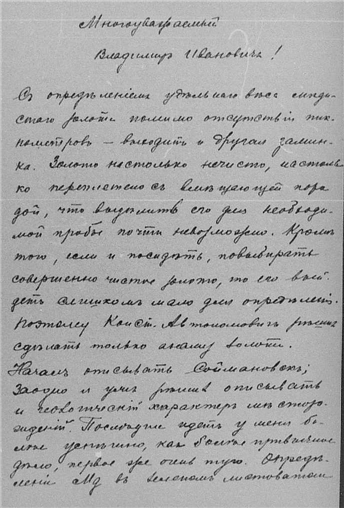 Многоуважаемый
Владимиръ Ивановичъ!
Съ опредѣленіемъ удѣльнаго вѣса
золота помимо отсутствія пик-
нометровъ – выходитъ и другая замин-
ка. Золото настолько нечисто, настоль-
ко переплетено съ вмѣщающей поро-
дой, что выдѣлить его для необходи-
мой пробы почти невозможно. Кромѣ
того, если и посидѣть, повыбирать
совершенно чистое золото, то его вый-
детъ слишкомъ мало для опредѣленій.
Поэтому Конст. Автономовичъ рѣшилъ
сдѣлать только анализ золота.
Начал описывать Соймановскъ;
Заодно я ужъ рѣшилъ описывать
и геологический характеръ мѣсторо-
жденій. Послѣднее идетъ у меня бо-
лѣе успѣшно, как болѣе привычное
дѣло, первое же очень туго. Опредѣ-
леніи Mg въ зеленомъ листоватом